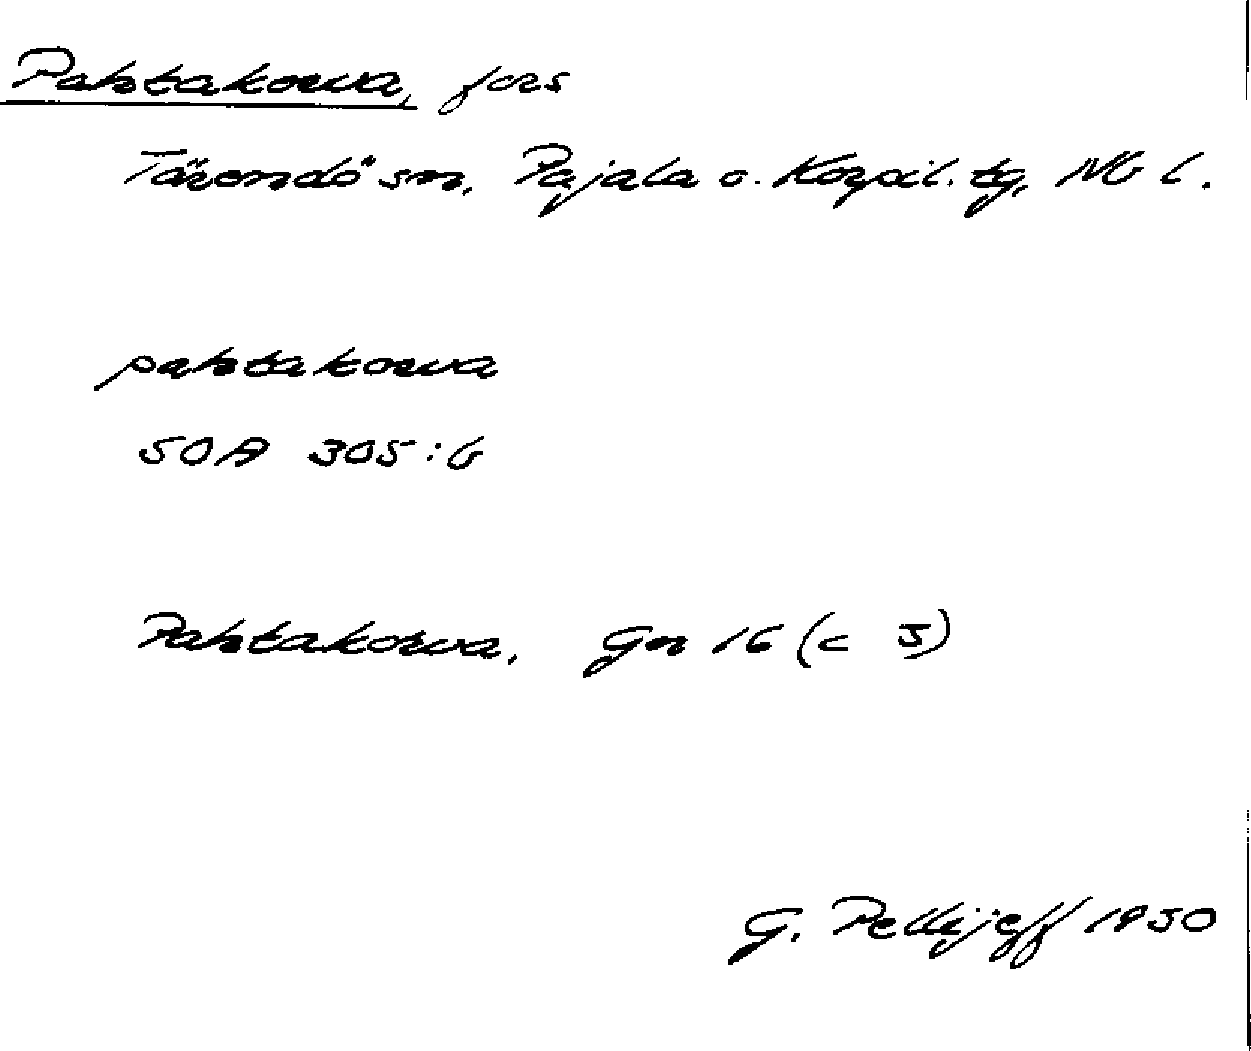 Pahtakorva, fors
Tärendö sn, Pajala o. Korpil. tg, Nb l.
pahtakorva
50A 305:b
Pahtakorva, Gn 16 (c 5)
G. Pellijeff 1950